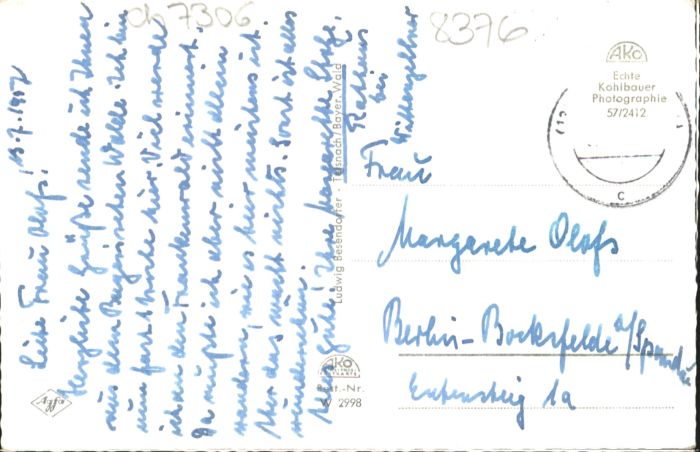 ch 7306
8376
AKO
Echte
Kohlbauer
Photographie
57/2412
C
13.7.1957
Liebe Frau Olafs!
Herzliche Grüße sende ich Ihnen
aus dem Bayrischen Walde. Ich bin
nun fast 1 Woche hier. Viel werde
ich an den Frankenwald erinnert.
Da mußte ich aber nicht allein
wandern, wie es hier meistens ist.
Aber das macht nichts. Sonst ist alles
wunderschön.
Alles Gute! Ihre Margarethe
Rathaus
bei
Ludwig Besendorfer - Teisnach/Bayer. Wald
Frau
Margarete Olafs
Berlin-Bocksfelde a/Spandau
Eutensteig 1a
AKO
Best.-Nr.
W 2998
Agfa